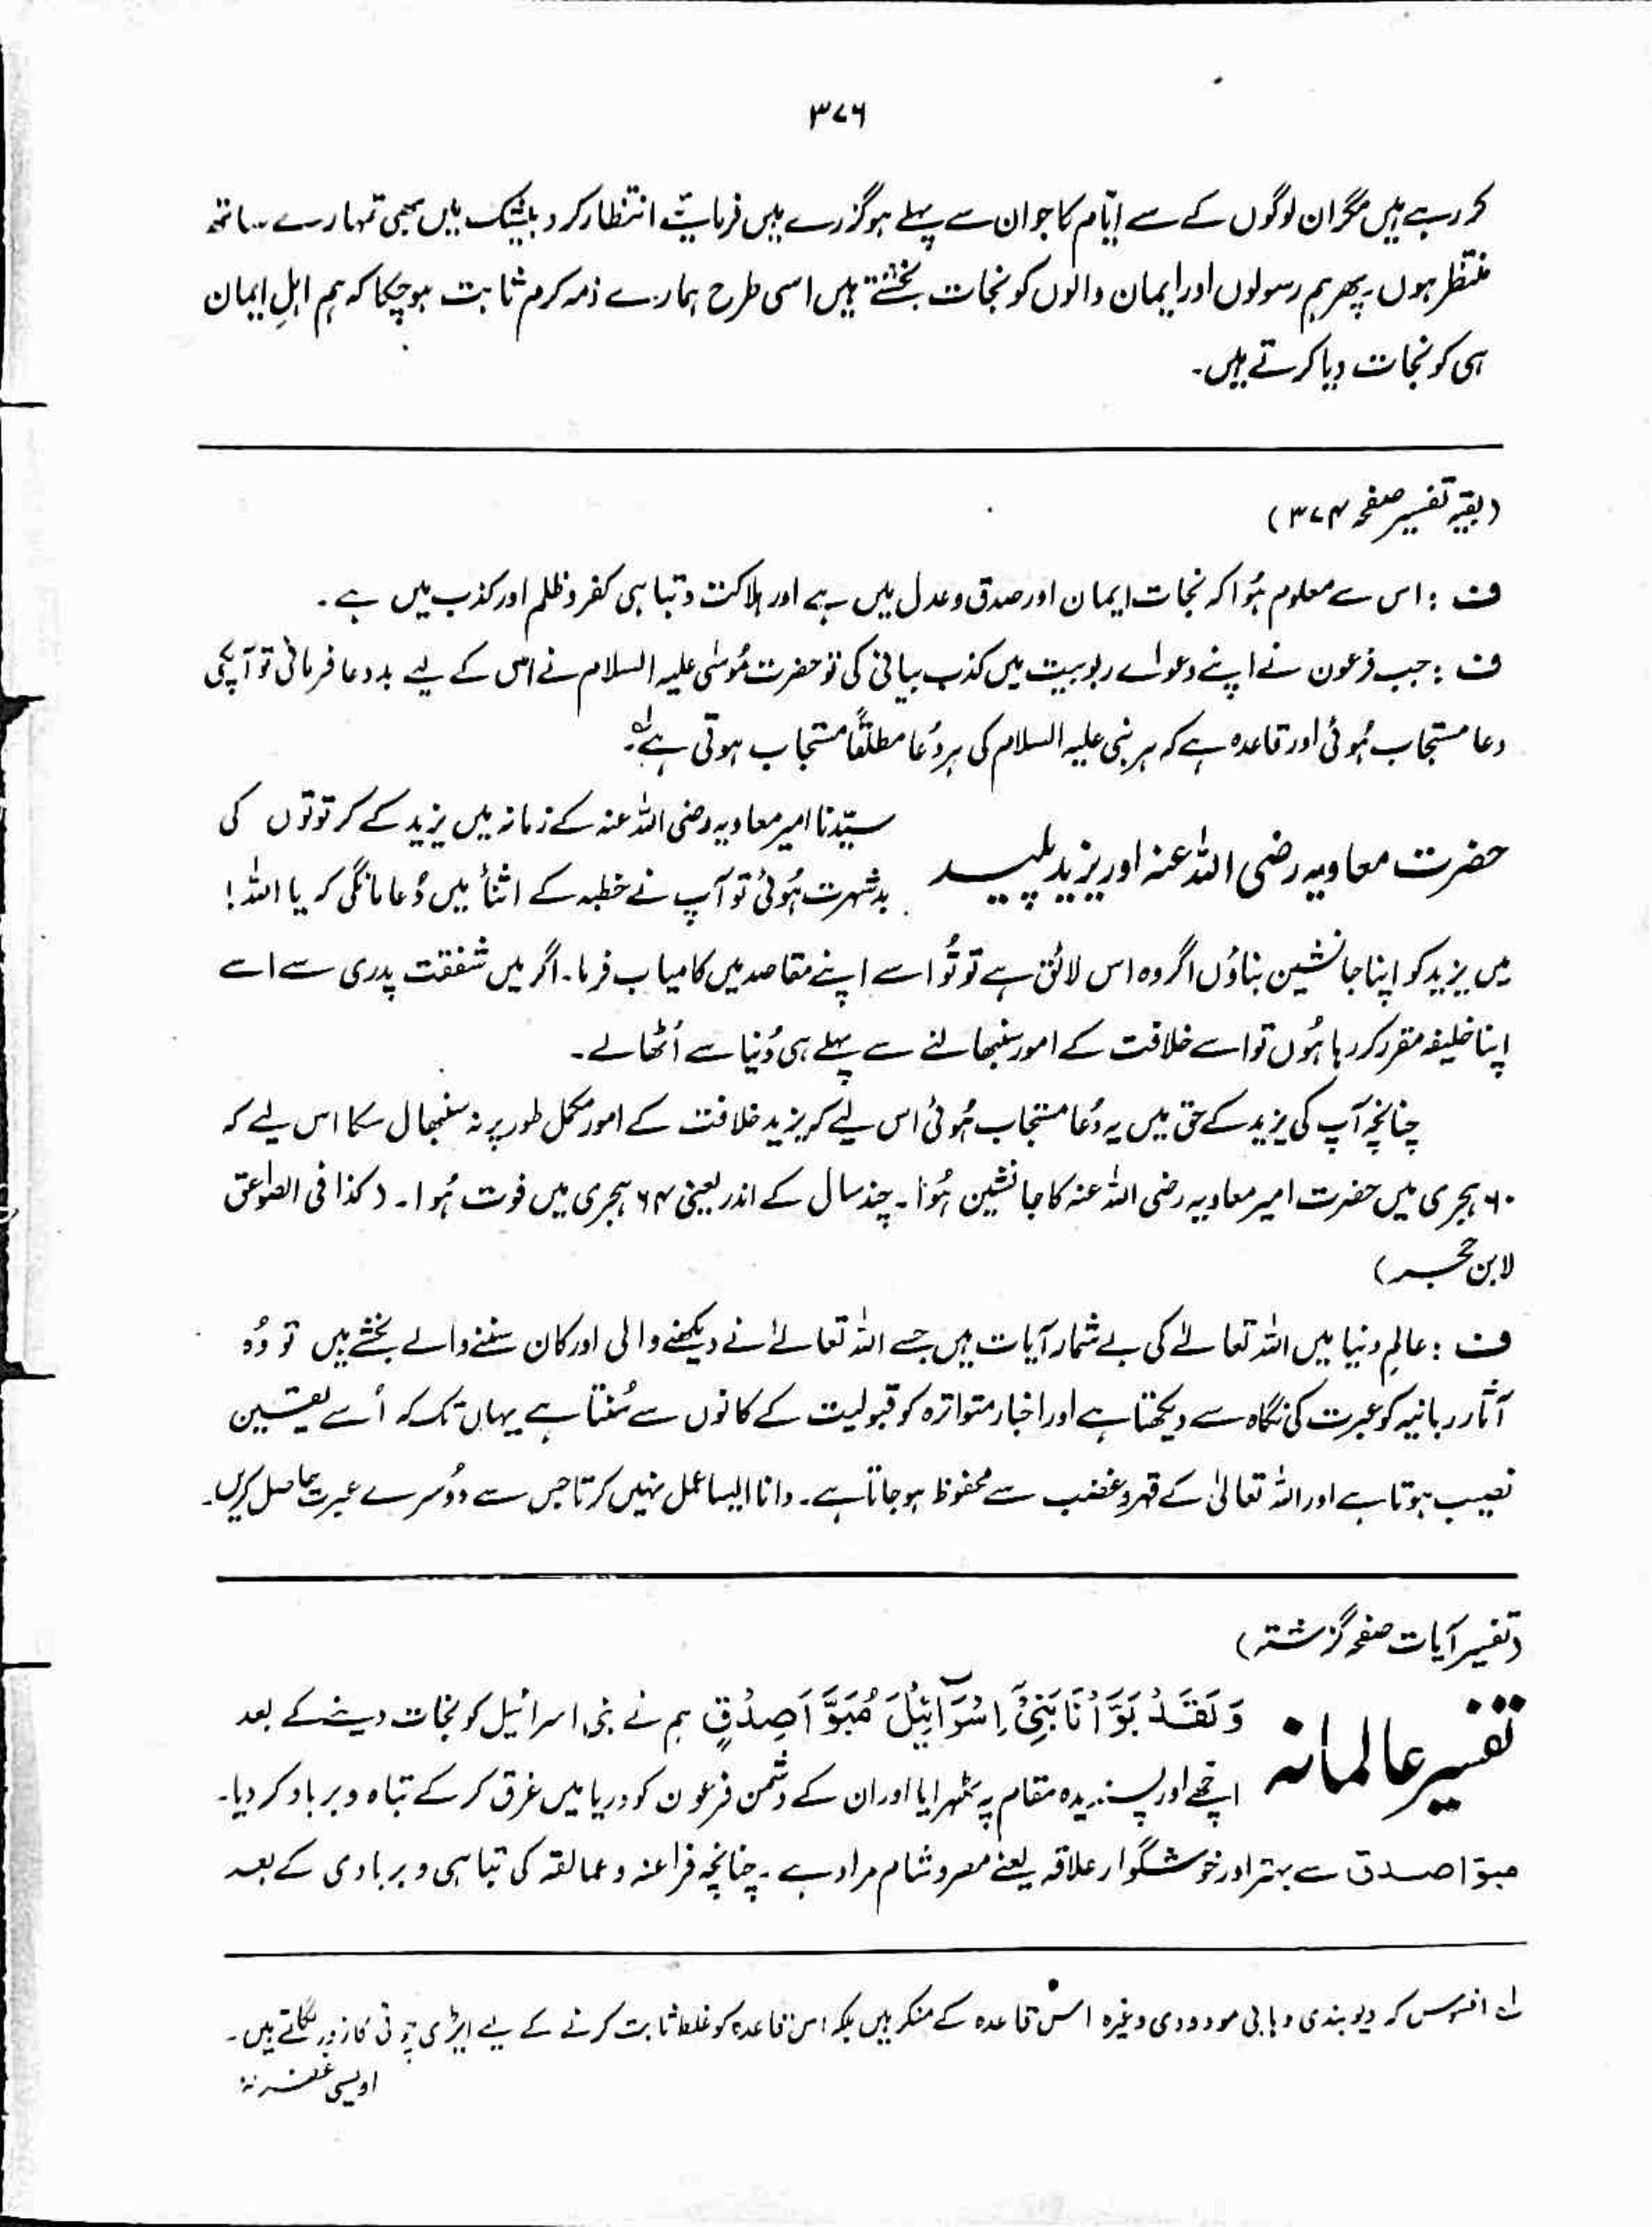 ۳۷۶
کر رہے ہیں مگر ان لوگوں کے سے ایّام کا جو ان سے پہلے ہو گزرے ہیں فرمایئے انتظار کرو بیشک میں بھی تمہارے ساتھ
منتظر ہوں۔ پھر ہم رسولوں اور ایمان والوں کو نجات بخشتے ہیں اسی طرح ہمارے ذمہ کرم ثابت ہوچکا کہ ہم اہلِ ایمان
ہی کو نجات دیا کرتے ہیں۔
(بقیہ تفسیر صفحہ ۳۷۴)
ف : اس سے معلوم ہُوا کہ نجات ایمان اور صدق و عدل میں ہے اور ہلاکت و تباہی کفر و ظلم اور کذب میں ہے۔
ف : جب فرعون نے اپنے دعواے ربوبیت میں کذب بیانی کی تو حضرت مُوسٰی علیہ السلام نے اس کے لیے بددعا فرمائی تو آپکی
دعا مستجاب ہُوئی اور قاعدہ ہے کہ ہر نبی علیہ السلام کی ہر دُعا مطلقًا مستجاب ہوتی ہے۔ لہ
حضرت معاویہ رضی اللہ عنہ اور یزید پلید
سیّدنا امیر معاویہ رضی اللہ عنہ کے زمانہ میں یزید کے کرتوتوں کی
بدشہرت ہُوئی تو آپ نے خطبہ کے اثنأ میں دُعا مانگی کہ یا اللہ !
میں یزید کو اپنا جانشین بناؤں اگر وہ اس لائق ہے تو تُو اسے اپنے مقاصد میں کامیاب فرما۔ اگر میں شفقت پدری سے اسے
اپنا خلیفہ مقرر کر رہا ہُوں تو اسے خلافت کے امور سنبھالنے سے پہلے ہی دُنیا سے اُٹھالے۔
چنانچہ آپ کی یزید کے حق میں یہ دُعا مستجاب ہُوئی اس لیے کہ یزید خلافت کے امور مکمل طور پر نہ سنبھال سکا اس لیے کہ
۶۰ ہجری میں حضرت امیر معاویہ رضی اللہ عنہ کا جانشین ہُوا۔ چند سال کے اندر یعنی ۶۴ ہجری میں فوت ہُوا۔ (کذا فی الصواعق
لابن حجر)
ف : عالمِ دنیا میں اللہ تعالےٰ کی بے شمار آیات ہیں جسے اللہ تعالےٰ نے دیکھنے والی اور کان سننے والے بخشے ہیں تو وُہ
آثارِ ربانیہ کو عبرت کی نگاہ سے دیکھتا ہے اور اخبار متواترہ کو قبولیت کے کانوں سے سُنتا ہے یہاں تک کہ اُسے یقین
نصیب ہوتا ہے اور اللہ تعالیٰ کے قہر و غضب سے محفوظ ہو جاتا ہے۔ دانا ایسا عمل نہیں کرتا جس سے دُوسرے عبرت حاصل کریں۔
(تفسیر آیات صفحہ گزشتہ)
تفسیر عالمانہ
وَلَقَدْ بَوَّأْنَا بَنِیْٓ اِسْرَآئِیْلَ مُبَوَّاَ صِدْقٍ ہم نے بنی اسرائیل کو نجات دینے کے بعد
اچھے اور پسندیدہ مقام پہ ٹھہرایا اور ان کے دشمن فرعون کو دریا میں غرق کر کے تباہ و برباد کر دیا۔
مبوّا صدق سے بہتر اور خوشگوار علاقہ یعنے مصر و شام مراد ہے۔ چنانچہ فراعنہ و عمالقہ کی تباہی و بربادی کے بعد
لہ افسوس کہ دیوبندی وہابی مودودی وغیرہ اس قاعدہ کے منکر ہیں بلکہ اس قاعدہ کو غلط ثابت کرنے کے لیے ایڑی چوٹی کا زور لگاتے ہیں۔
اویسی غفرلہ